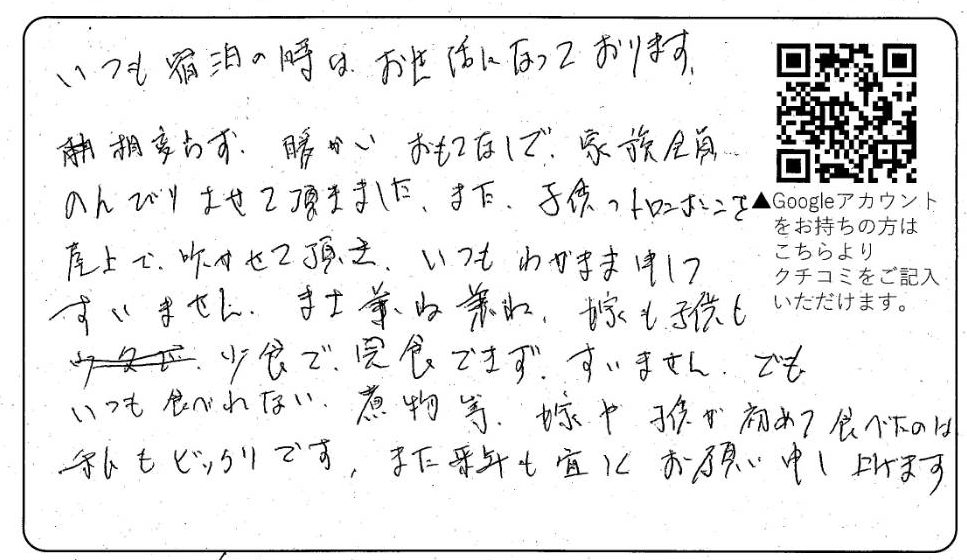 いつも宿泊の時は、お世話になっております。
相変らず、暖かいおもてなしで、家族全員
のんびりさせて頂きました。また、子供のトロンボーンを
屋上で、吹かせて頂き、いつもわがまま申して
すいません。また 兼ね兼ね、嫁も子供も
少食で、完食できず、すいません。でも
いつも食べれない、煮物等、嫁や子供が初めて食べたのは
私もビックリです。また来年も宜しくお願い申し上げます
▲Googleアカウント
をお持ちの方は
こちらより
クチコミをご記入
いただけます。